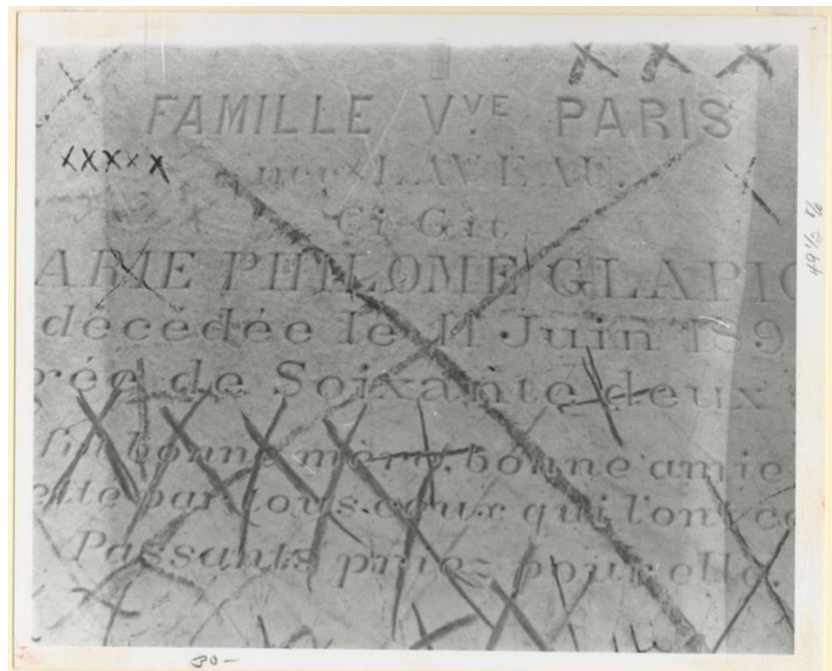 XXX
FAMILLE VVE PARIS
XXXXX
née LAVEAU.
Ci-Gît
ARIE PHILOME GLAPIO
décédée le 11 Juin 189
gée de Soixante deux
fut bonne mère, bonne amie
ette par tous ceux qui l'ont co
Passants priez pour elle.
49 1/2 %
30-